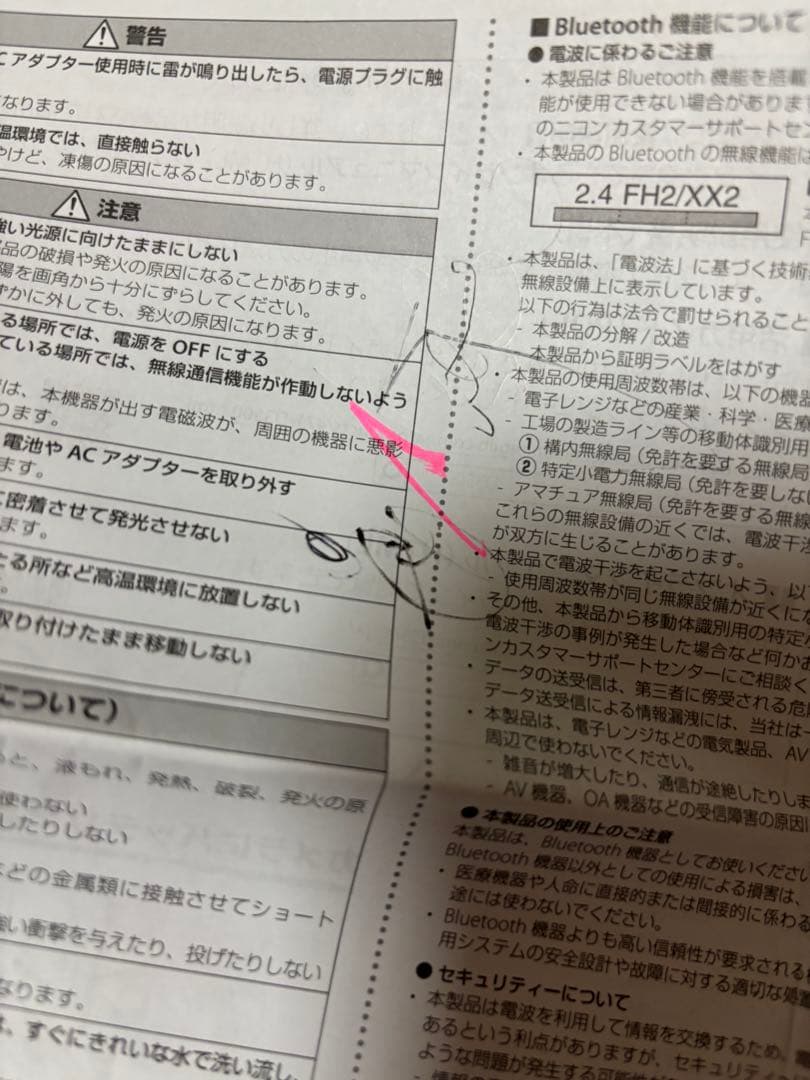 警告
Cアダプター使用時に雷が鳴り出したら、電源プラグに触
なります。
温環境では、直接触らない
やけど、凍傷の原因になることがあります。
注意
強い光源に向けたままにしない
製品の破損や発火の原因になることがあります。
陽を画角から十分にずらしてください。
ずかに外しても、発火の原因になります。
る場所では、電源をOFFにする
ている場所では、無線通信機能が作動しないよう
は、本機器が出す電磁波が、周囲の機器に悪影
ります。
電池やACアダプターを取り外す
ます。
に密着させて発光させない
ます。
たる所など高温環境に放置しない
取り付けたまま移動しない
について）
ると、液もれ、発熱、破裂、発火の原
使わない
したりしない
などの金属類に接触させてショート
強い衝撃を与えたり、投げたりしない
なります。
は、すぐにきれいな水で洗い流し、
■ Bluetooth 機能について
● 電波に係わるご注意
・本製品は Bluetooth 機能を搭載
能が使用できない場合がありま
のニコン カスタマーサポートセ
・本製品の Bluetooth の無線機能は
2.4 FH2/XX2
・本製品は、「電波法」に基づく技術
無線設備上に表示しています。
以下の行為は法令で罰せられること
- 本製品の分解/改造
- 本製品から証明ラベルをはがす
・本製品の使用周波数帯は、以下の機器
- 電子レンジなどの産業・科学・医療
- 工場の製造ライン等の移動体識別用
① 構内無線局（免許を要する無線局
② 特定小電力無線局（免許を要しな
- アマチュア無線局（免許を要する無線
これらの無線設備の近くでは、電波干渉
が双方に生じることがあります。
・本製品で電波干渉を起こさないよう、以
- 使用周波数帯が同じ無線設備が近くにな
・その他、本製品から移動体識別用の特定小
電波干渉の事例が発生した場合など何かお
ンカスタマーサポートセンターにご相談く
・データの送受信は、第三者に傍受される危
データ送受信による情報漏洩には、当社は一
・本製品は、電子レンジなどの電気製品、AV
周辺で使わないでください。
- 雑音が増大したり、通信が途絶したりしま
- AV 機器、OA 機器などの受信障害の原因に
● 本製品の使用上のご注意
本製品は、Bluetooth 機器としてお使いください
Bluetooth 機器以外としての使用による損害は、
・医療機器や人命に直接的または間接的に係わる
途には使わないでください。
・Bluetooth 機器よりも高い信頼性が要求される
用システムの安全設計や故障に対する適切な処置
● セキュリティーについて
・本製品は電波を利用して情報を交換するため、電
あるという利点がありますが、セキュリティ
ような問題が発生する可能性